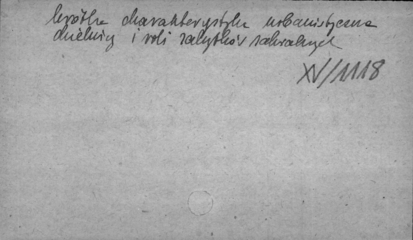 krótka charakterystyka urbanistyczna
dzielnicy i roli zabytków sakralnych
XV/1118